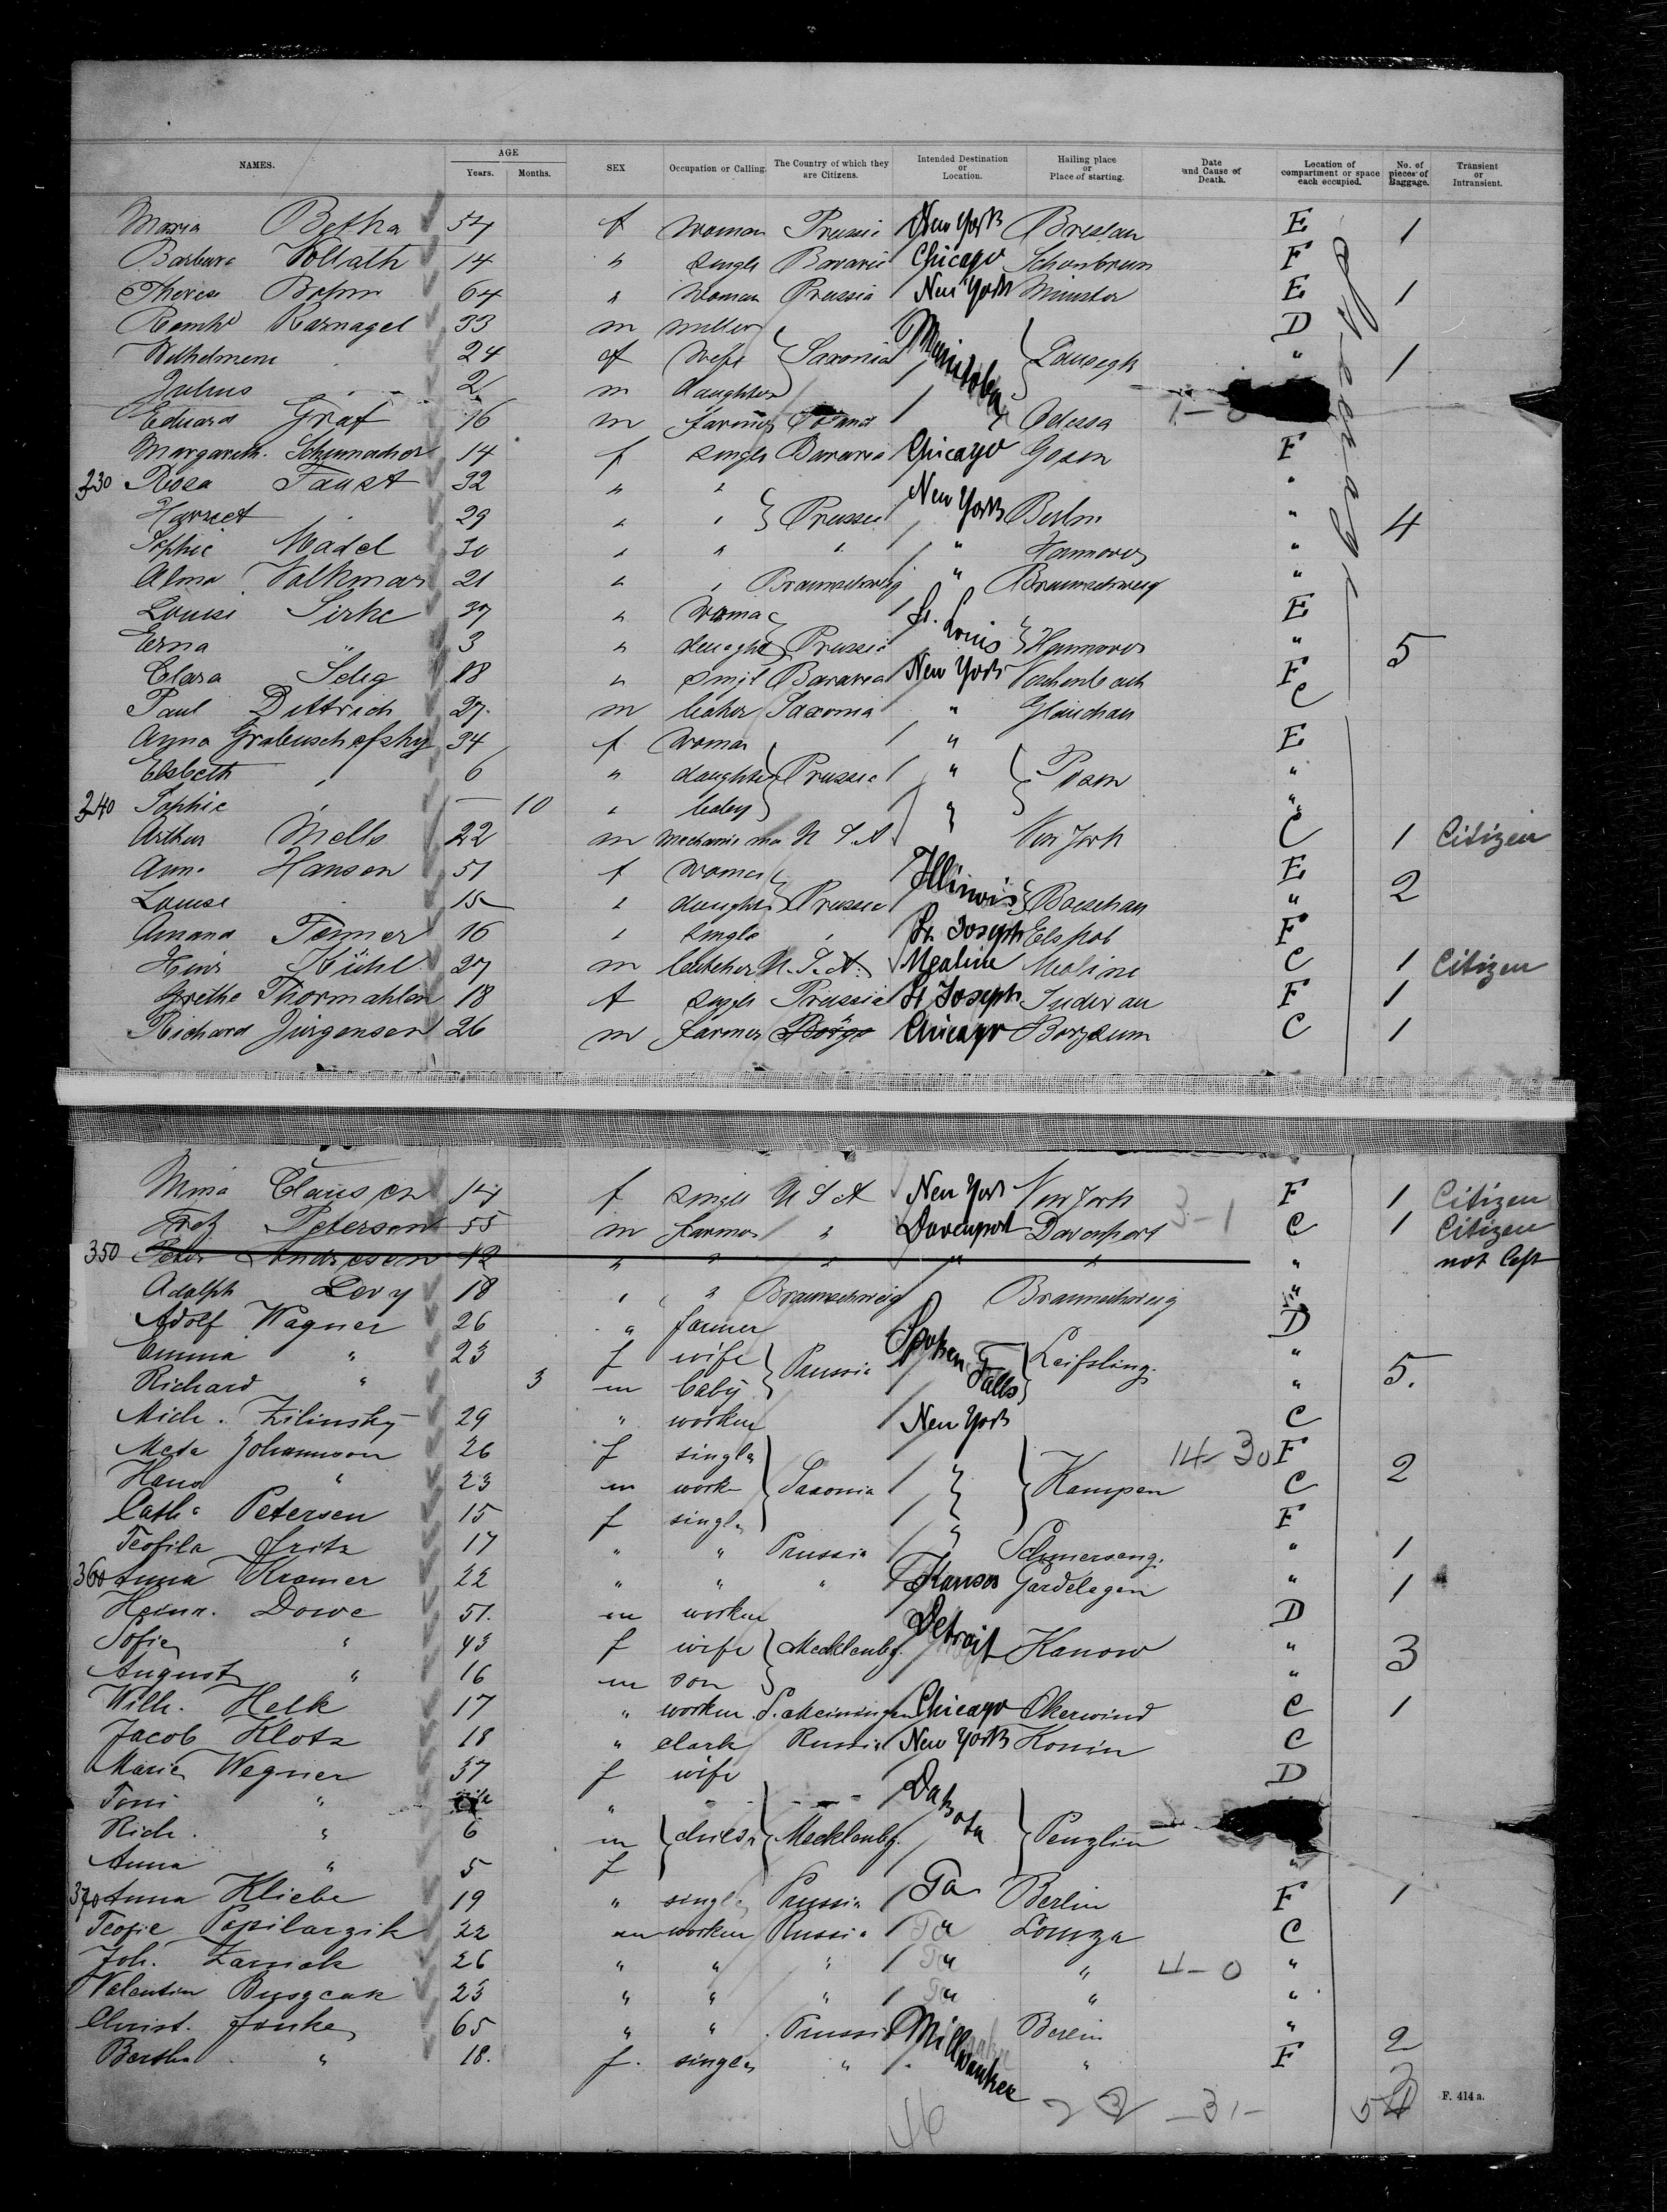 NAMES. AGE Years. Months. SEX Occupation or Calling. The Country of which they are Citizens. Intended Destination or Location. Hailing place or Place of starting. Date and Cause of Death. Location of compartment or space each occupied. No. of pieces of Baggage. Transient or Intransient.
Maria Betka 54 f woman Prussia New York Breslau E 1
Barbara Vollath 14 " single Bavaria Chicago Schonbrunn F
Therese Bohm 64 " woman Prussia New York Munster E 1
Karnagel 33 m miller D
Wilhelmine 24 f wife Saxonia Manitoba " 1
Julius 2 m daughter
Eduard Graf 16 m farmer Odessa
Margareth. Schumacher 14 f single Bavaria Chicago F
230 Rosa Faust 32 " " New York "
29 " " Prussia Berlin " 4
Sophie Madel 30 " " " " Hannover "
Alma Volkmar 21 " " Braunschweig " Braunschweig "
Louise Sirke 27 " woman St. Louis E
Erna " 3 " daught Prussia Hannover " 5
Clara Selig 18 " singl Bavaria New York F
Paul Dittrich 27 m baker Saxonia " Glauchau C
Anna Grabuschefsky 34 f woman " E
Elsbeth " 6 " daughter Prussia " Posen "
240 Sophie " — 10 " baby " "
Arthur Mells 22 m mechanic man U S A New York C 1 Citizen
Anna Hansen 51 f woman Illinois E 2
Louise 15 " daught Prussia "
Amand 16 " single " St. Joseph F
Heinr Kühl 27 m butcher U. S. A. Mealine Mealine C 1 Citizen
Grethe Thormahlen 18 f single Prussia St Joseph F 1
Richard Jürgensen 26 m farmer Chicago C 1
Steerage
Mina Clausen 14 f single U S A New York New York F 1 Citizen
Peterson 55 m farmer " Davenport Davenport 3-1 C 1 Citizen
350 Peter Andresen 42 " " " " " "
Adolph Levy 18 " " Braunschweig Braunschweig "
Adolf Wagner 26 " farmer D
Emma " 23 f wife Prussia Spoken Falls Leifsling. "
Richard " 3 m baby " 5.
Mich. Zilinsky 29 " worker New York C
Meta Johannson 26 f single 14-30 F
Hans " 23 m work Saxonia " Kampen C 2
Cath. Petersen 15 f single F
Teofila Fritz 17 " " Prussia " " 1
360 Anna Kramer 22 " " " Kansas Gardelegen " 1
Heinr. Dowe 51. m worker D
Sofie " 43 f wife Mecklenbg. Detroit Kanow " 3
August " 16 m son "
Wilh. Helk 17 " worker S. Meiningen Chicago Okerwind C 1
Jacob Klotz 18 " clark Russia New York Konin C
Marie Wegner 37 f wife D
Toni " "
Rich. " 6 m childr. Mecklenbg. Dakota Penzlin
Anna " 5 f "
370 Anna Kliebe 19 " single Prussia Pa Berlin F 1
Teofil 22 m worker Russia Pa Lomza C
Joh. 26 " " " " " 4-0 "
Valentin 23 " " " " " "
Christ. Janke 65 " " Prussia Millwaukee Berlin " 2
Bertha " 18. f. single " " F
46 -31- F. 414 a.